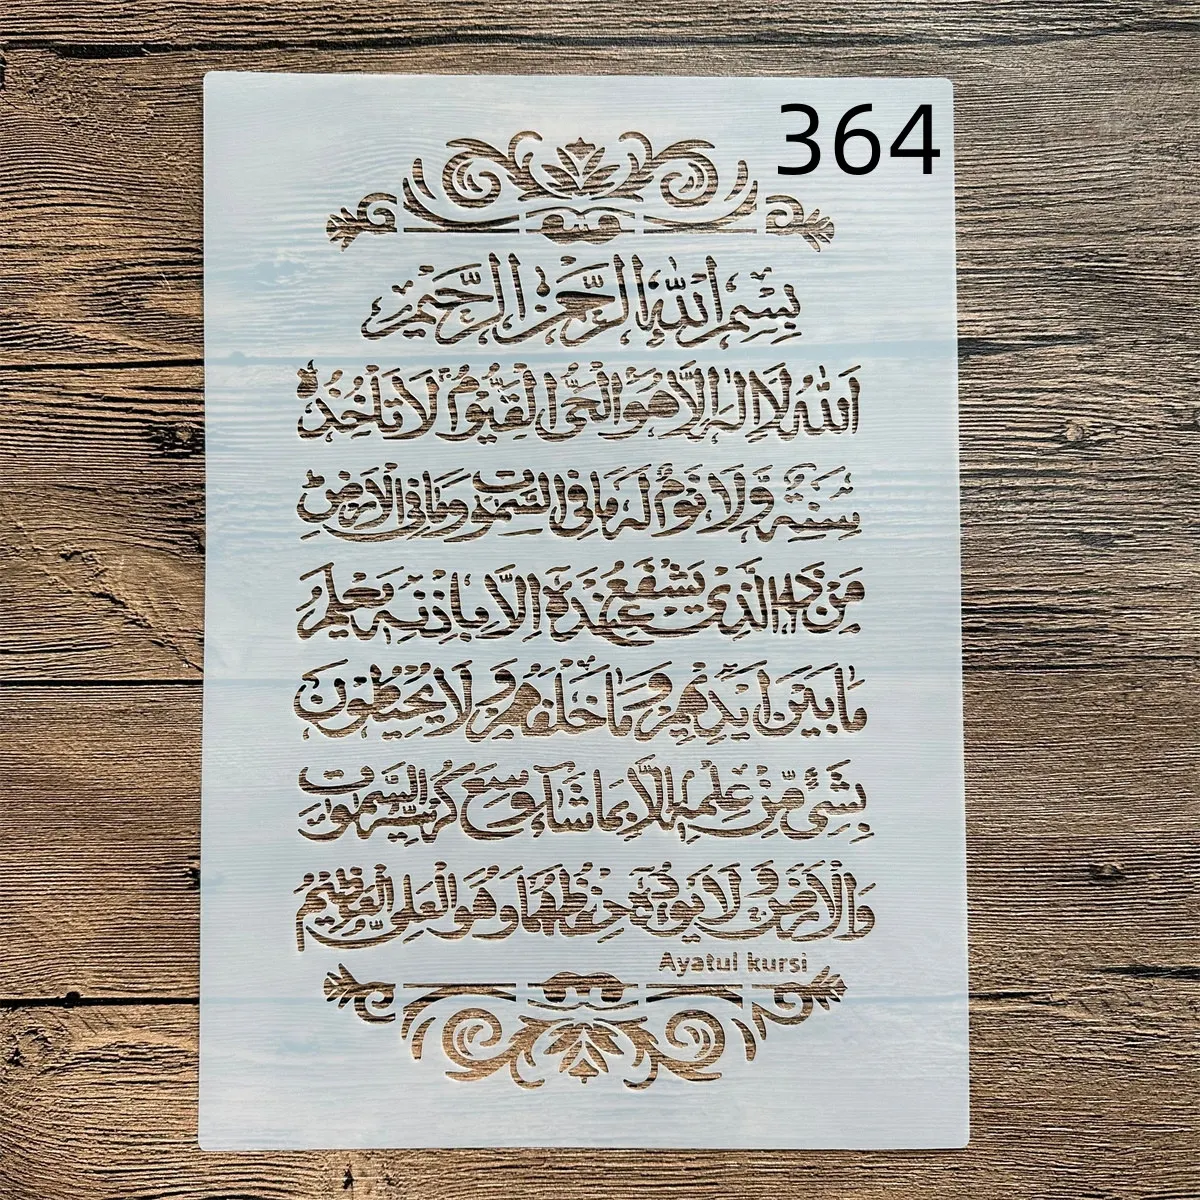 364
بِسْمِ اللهِ الرَّحْمٰنِ الرَّحِيْمِ
اَللهُ لَا اِلٰهَ اِلَّا هُوَ الْحَيُّ الْقَيُّوْمُ لَا تَأْخُذُهٗ
سِنَةٌ وَّلَا نَوْمٌ لَهٗ مَا فِي السَّمٰوٰتِ وَمَا فِي الْاَرْضِ
مَنْ ذَا الَّذِيْ يَشْفَعُ عِنْدَهٗ اِلَّا بِاِذْنِهٖ يَعْلَمُ
مَا بَيْنَ اَيْدِيْهِمْ وَمَا خَلْفَهُمْ وَلَا يُحِيْطُوْنَ
بِشَيْءٍ مِّنْ عِلْمِهٖ اِلَّا بِمَا شَآءَ وَسِعَ كُرْسِيُّهُ السَّمٰوٰتِ
وَالْاَرْضَ وَلَا يَـُٔوْدُهٗ حِفْظُهُمَا وَهُوَ الْعَلِيُّ الْعَظِيْمُ
Ayatul kursi